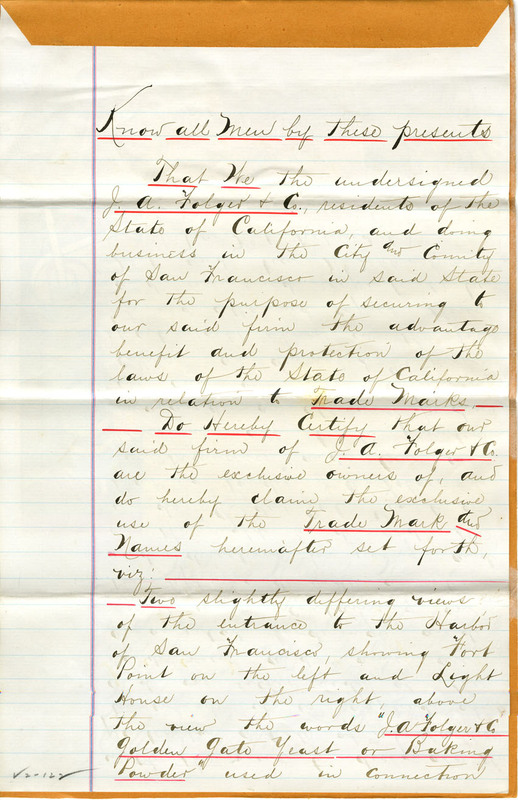 Know all Men by these presents
That We the undersigned
J. A. Folger & Co., residents of the
State of California, and doing
business in the City and County
of San Francisco in said State
for the purpose of securing to
our said firm the advantage
benefit and protection of the
laws, of the State of California
in relation to Trade Marks,
Do Hereby Certify that our
said firm of J. A. Folger & Co.
are the exclusive owners of, and
do hereby claim the exclusive
use of the Trade Mark and
Names hereinafter set forth,
viz:
Two slightly differing views
of the entrance to the Harbor
of San Francisco, showing Fort
Point on the left and Light
House on the right, above
the view the words "J. A Folger & Co
Golden Gate Yeast or Baking
Powder" used in connection